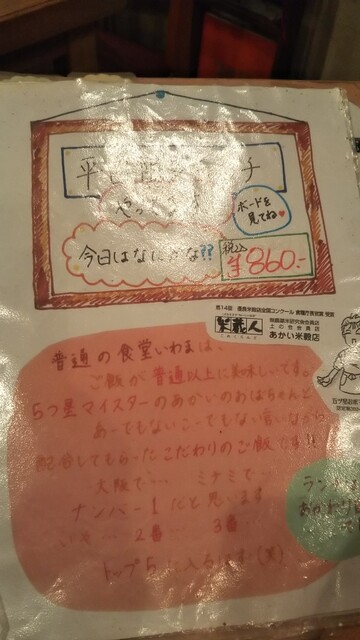 平日
やって
ボードを
見てね
今日はなにかな??
税込
¥860-
第14回 優良米飯店全国コンクール 食糧庁長官賞 受賞
繁義人
あかい米穀店
普通の食堂いわまは、
ご飯が普通以上に美味しいです。
5つ星マイスターのあかいのおばちゃんと
あーでもないこーでもない言いながら
配合してもらったこだわりのご飯です!!
大阪で… ミナミで…
ナンバー1だと思います
2番… 3番…
トップ5に入るはず(笑)
ランチ